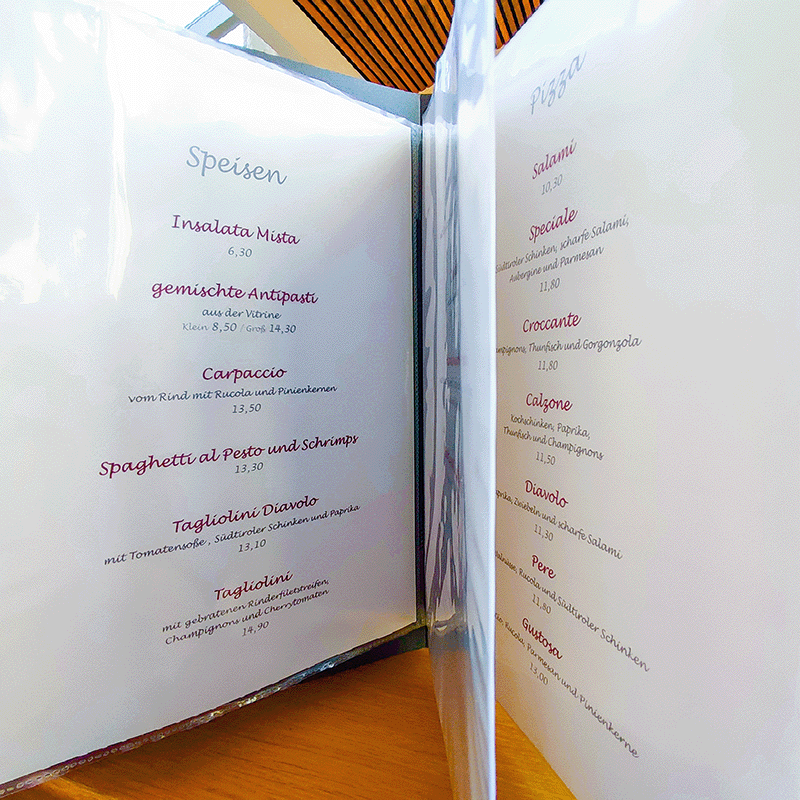 Speisen
Insalata Mista
6,30
gemischte Antipasti
aus der Vitrine
Klein 8,50 / Groß 14,30
Carpaccio
vom Rind mit Rucola und Pinienkernen
13,50
Spaghetti al Pesto und Schrimps
13,30
Tagliolini Diavolo
mit Tomatensoße , Südtiroler Schinken und Paprika
13,10
Tagliolini
mit gebratenen Rinderfiletstreifen,
Champignons und Cherrytomaten
14,90
Pizza
Salami
10,30
Speciale
Südtiroler Schinken, scharfe Salami,
Aubergine und Parmesan
11,80
Croccante
Thunfisch und Gorgonzola
11,80
Calzone
Kochschinken, Paprika,
Thunfisch und Champignons
11,50
Diavolo
Zwiebeln und scharfe Salami
11,30
Pere
Rucola und Südtiroler Schinken
11,80
Gustosa
Rucola, Parmesan und Pinienkerne
13,00